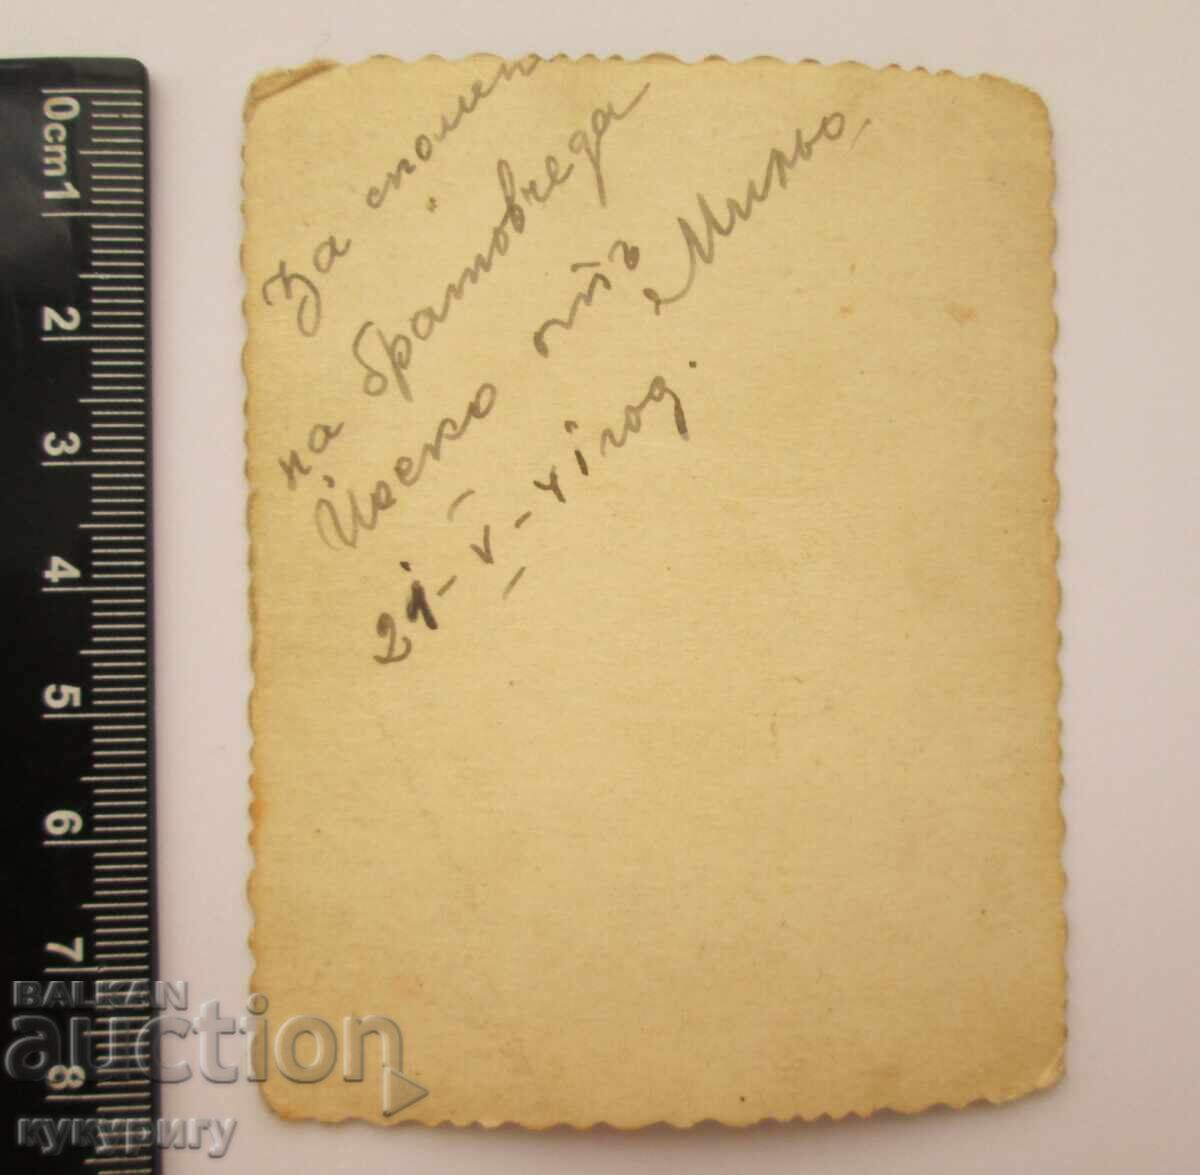 За спомен
на братовчеда
Йоско отъ
Миньо.
21-V-41 год.
0cm1 2 3 4 5 6 7 8
BALKAN
auction
кукуригу